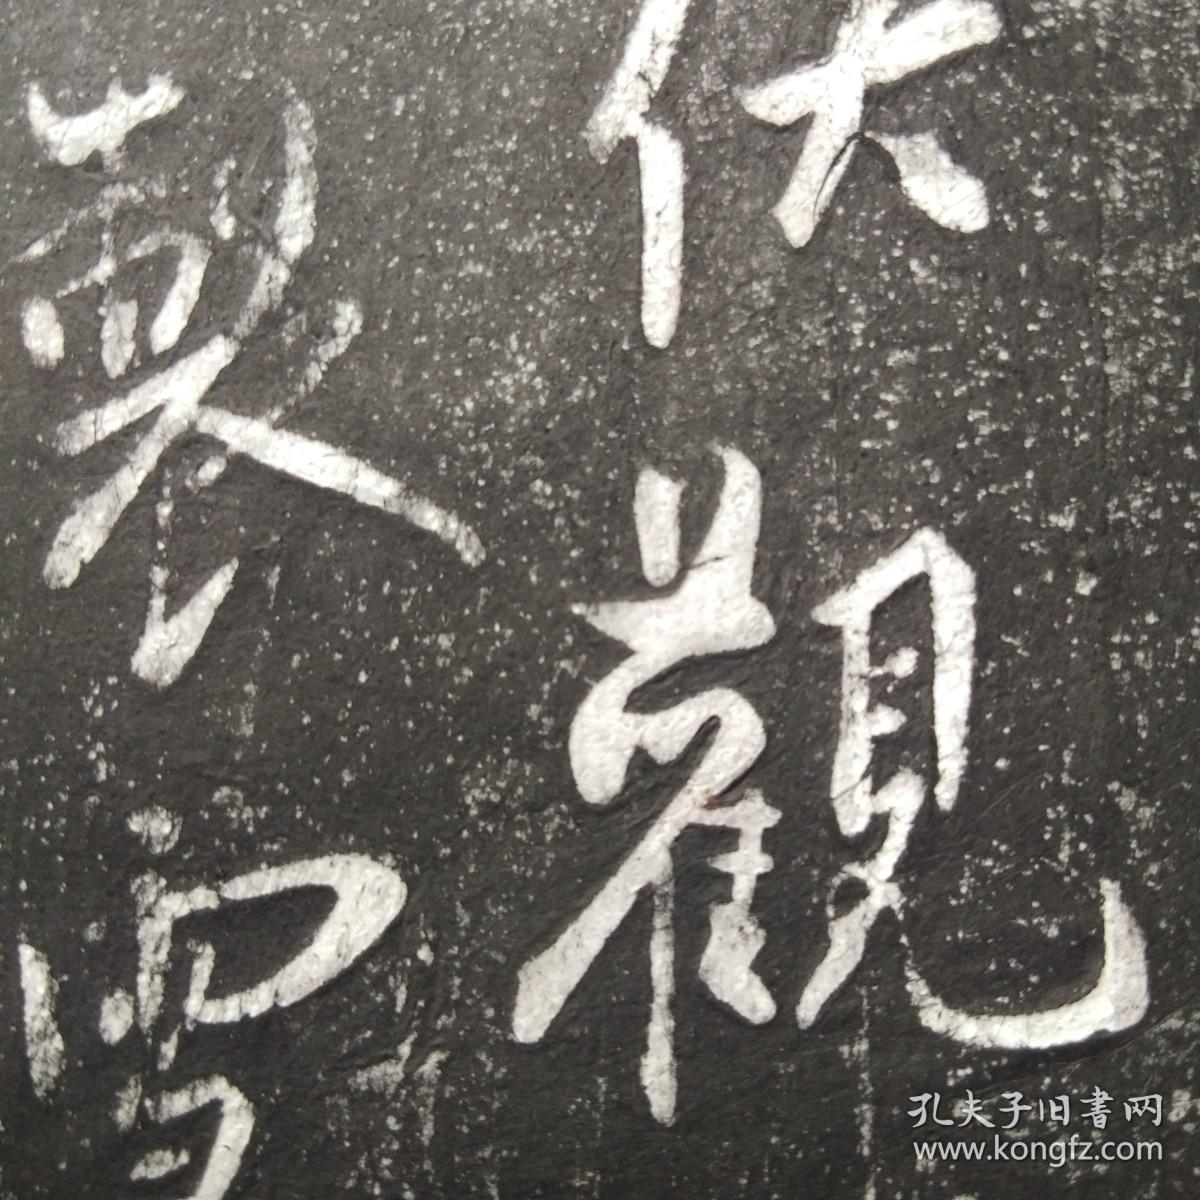 伏觀
製
孔夫子旧書网
www.kongfz.com